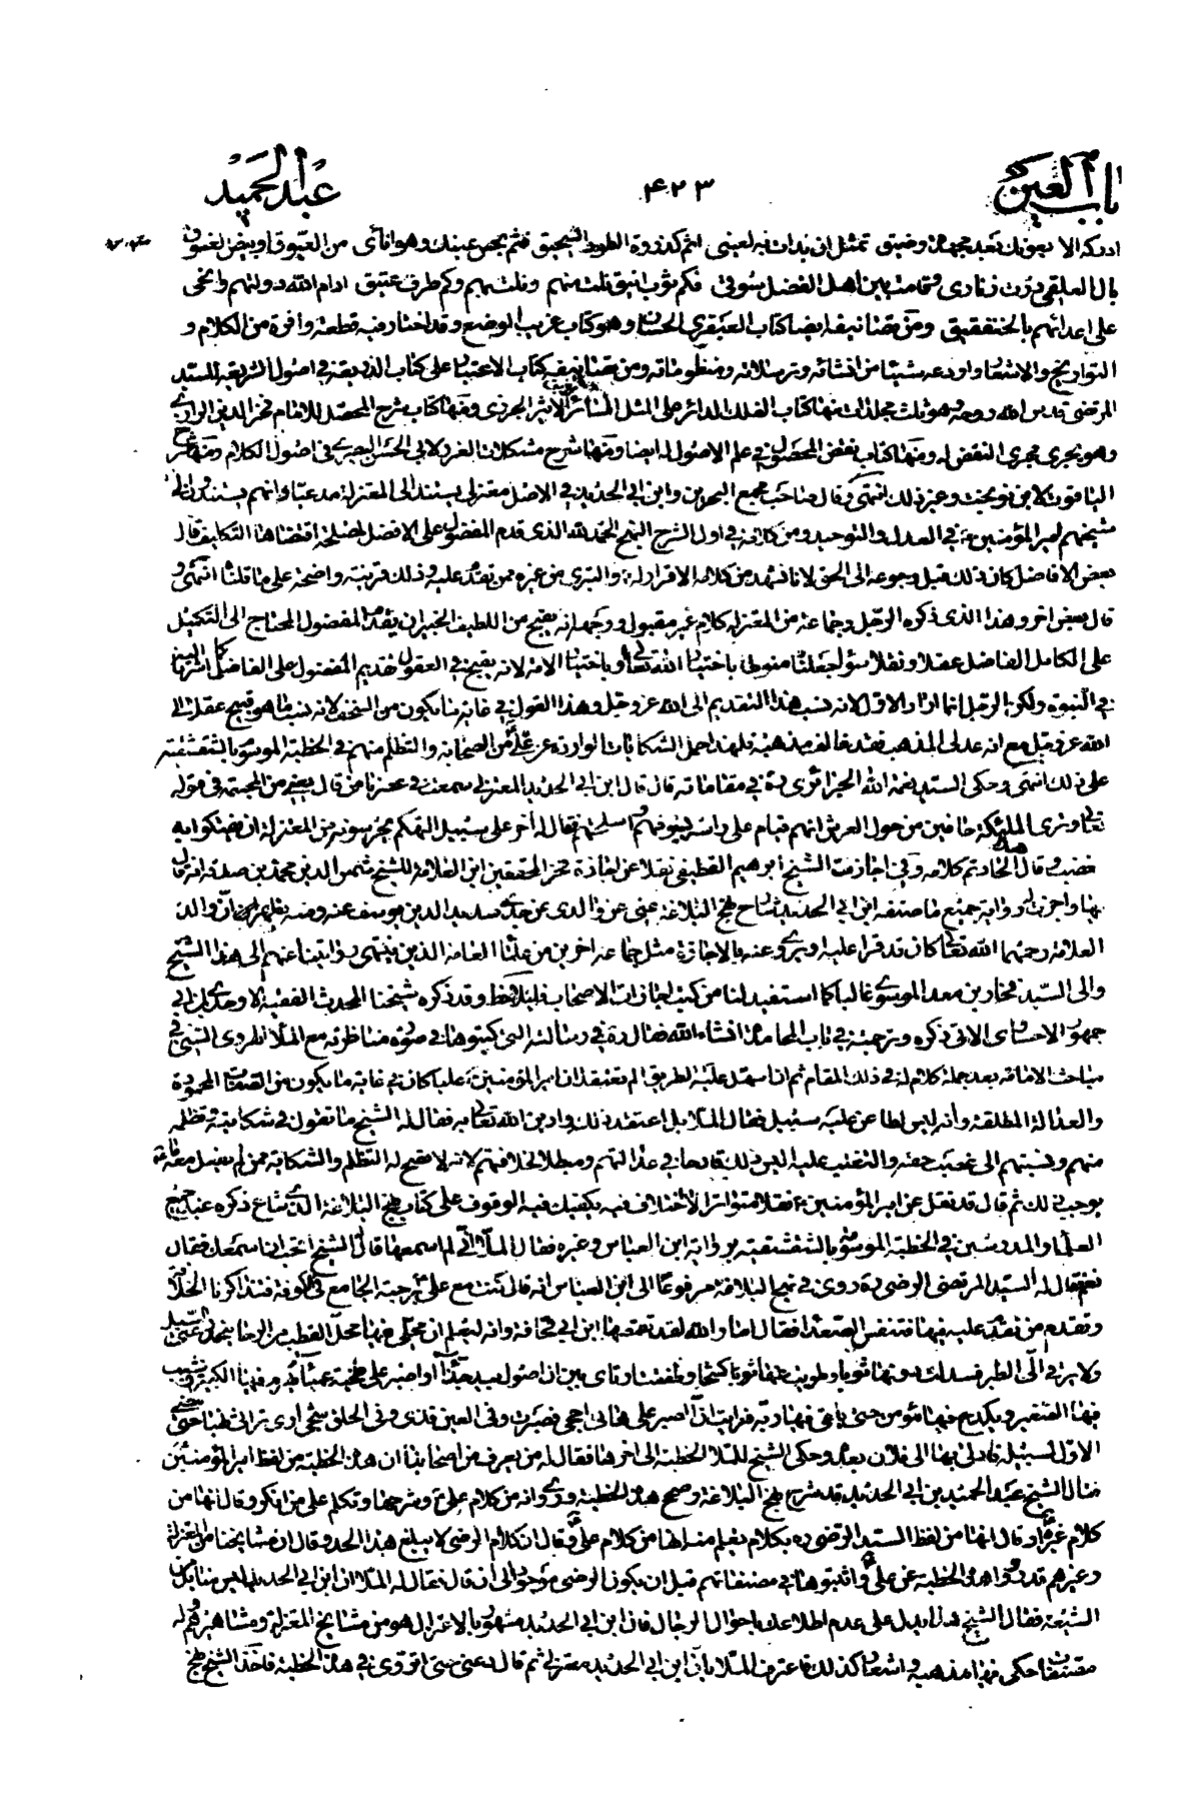 باب العين ۴۲۳ عبد الحميد
على اعدائهم بالخنفقيق ومن تصانيفه ايضا كتاب العبقري الحسان وهو كتاب غريب الوضع وقد اختار فيه قطعة وافرة من الكلام و
التواريخ والاشعار واودعه شيئا من انشائه وترسلاته ومنظوماته ومن تصانيفه كتاب الاعتبار على كتاب الذريعة في اصول الشريعة للسيد
المرتضى قدس الله روحه وهو ثلث مجلدات ومنها كتاب الفلك الدائر على المثل السائر لابن الاثير الجزري ومنها كتاب شرح المحصل للامام فخر الدين الرازي
وهو يجري مجرى النقض له ومنها كتاب نقض المحصول في علم الاصول له ايضا ومنها شرح مشكلات الغرر لابي الحسين البصري في اصول الكلام ومنها شرح
الياقوت لابن نوبخت وغير ذلك انتهى وقال صاحب مجمع البحرين وابن ابي الحديد في الاصل معتزلي يستند الى المعتزلة مدعيا انهم يستندون الى
شيخهم امير المؤمنين ع في العدل والتوحيد ومن كلامه في اول الشرح النهج الحمد لله الذي قدم المفضول على الافضل لمصلحة اقتضاها التكليف قال
بعض الافاضل كان ذلك قبل رجوعه الى الحق لانا نشهد من كلامه الاقرار له ع والتبري من غيره ممن تقدم عليه وذلك قرينة واضحة على ما قلنا انتهى و
قال بعض اخر وهذا الذي ذكره الرجل وجماعة من المعتزلة كلام غير مقبول ووجه انه يقبح من اللطيف الخبير ان يقدم المفضول المحتاج الى التكميل
على الكامل الفاضل عقلا ونقلا سواء جعلناه منوطا باختيار الله تعالى او باختيار الامة لانه يقبح في العقول تقديم المفضول على الفاضل كما اشرنا اليه
في النبوة ولكن الرجل انما اراد الاول لانه نسب هذا التقديم الى الله عز وجل وهذا القول في غاية ما يكون من السخف لانه نسب ما هو قبيح عقلا الى
الله عز وجل مع انه عدلي المذهب فقد خالف مذهبه فلهذا حمل الشكايات الواردة عن علي ع من الصحابة والتظلم منهم في الخطبة الموسومة بالشقشقية
على ذلك انتهى وحكى السيد نعمة الله الجزائري ره في مقاماته قال قال ابن ابي الحديد المعتزلي سمعت في عصرنا من قال
تعالى وترى الملئكة حافين من حول العرش انهم قيام على راسه بسيوفهم واسلحتهم فقال له اخر على سبيل التهكم يحرسونه من المعتزلة ان يفتكوا به
فغضب وقال هذا الحاد تم كلامه وفي اجازة الشيخ ابرهيم القطيفي نقلا عن اجازة فخر المحققين ابن العلامة للشيخ شمس الدين محمد بن صدقة
واجزت له رواية جميع ما صنفه ابن ابي الحديد شارح نهج البلاغة عني عن والدي عن جدي سديد الدين يوسف عنه وفيه
العلامة رحمهما الله تعالى كان قد قرأ عليه ويروي عنه بالاجازة مثل جماعة اخرين من علماء العامة الذين ينتهي رواياتنا عنهم الى هذا الشيخ
والى السيد فخار بن معد الموسوي غالبا كما استفيد لنا من كتب اجازات الاصحاب فليلاحظ وقد ذكره شيخنا المحدث الفقيه الاوحدي ابن ابي
جمهور الاحسائي الاتي ذكره وترجمته في باب المحامدة انشاء الله فقال ره في رسالته التي كتبوها في صورة مناظرته مع الملا الهروي السني في
مباحث الامامة بعد جملة كلام له في ذلك المقام ثم انا سهل عليه الطريق الم تعتقد ان امير المؤمنين ع عليا كان في غاية ما يكون من الصفات المحمودة
والعدالة المطلقة وانه ليس لطاعن عليه سبيل فقال الملا بل اعتقد ذلك وادين الله تعالى به فقال له الشيخ ما تقول في شكايته وتظلمه
منهم ونسبتهم الى غصب حقه والتغلب عليه اليس ذلك قادحا في عدالتهم ومبطلا لخلافتهم لانه لا يصح له التظلم والشكاية ممن لم يفعل معه ما
يوجب ذلك ثم قال قد نقل عن امير المؤمنين ع نقلا متواترا لا اختلاف فيه يكفيك فيه الوقوف على كتاب نهج البلاغة الذي شاع ذكره عند جميع
العلماء والمدرسين في الخطبة الموسومة بالشقشقية برواية ابن العباس وغيره فقال الملا اني لم اسمعها قال الشيخ اتحب ان اسمعك فقال
نعم فقال له السيد المرتضى الرضي ره روى في نهج البلاغة مرفوعا الى ابن العباس انه قال كنت مع علي ع برحبة الجامع في الكوفة فتذاكرنا الخلافة
وتقدم من تقدم عليه فيها فتنفس الصعداء فقال اما والله لقد تقمصها ابن ابي قحافة وانه ليعلم ان محلي منها محل القطب من الرحا ينحدر عني السيل
ولا يرقى الي الطير فسدلت دونها ثوبا وطويت عنها كشحا وطفقت ارتاي بين ان اصول بيد جذاء او اصبر على طخية عمياء يهرم فيها الكبير ويشيب
فيها الصغير ويكدح فيها مؤمن حتى يلقى فيها ربه فرايت ان الصبر على هاتا احجى فصبرت وفي العين قذى وفي الحلق شجى ارى تراثي نهبا حتى مضى
الاول لسبيله فادلى بها الى فلان بعده وحكى الشيخ للملا الخطبة الى اخرها فقال له من يعرف من اصحابنا ان هذه الخطبة من لفظ امير المؤمنين
فقال الشيخ عبد الحميد بن ابي الحديد قد شرح نهج البلاغة وصحح هذه الخطبة وروى انه من كلام علي ع وشرحها وتكلم على من انكر وقال انها من
كلام غيره او قال انها من لفظ السيد الرضي ره بكلام يعلم منه انها من كلام علي ع وقال ان كلام الرضي لا يبلغ هذا الحد وقال ان مشايخنا من المعتزلة
وغيرهم قد رووا هذه الخطبة عن علي ع واثبتوها في مصنفاتهم قبل ان يكون الرضي موجودا الى ان قال فقال له الملا ان ابن ابي الحديد ليس منا بل من
الشيعة فقال الشيخ هذا يدل على عدم اطلاعك باحوال الرجال فان ابن ابي الحديد مشهور بالاعتزال هو من مشايخ المعتزلة ومشاهيرهم وله
مصنفات حكى فيها مذهبه واشعار كذلك فاعترف الملا بان ابن ابي الحديد معتزلي ثم قال دعني حتى اقروى في هذه الخطبة فاخذ الشيخ نهج